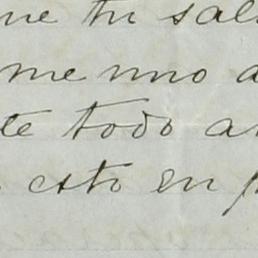 ne tu sal
me uno a
te todo a
esto en p